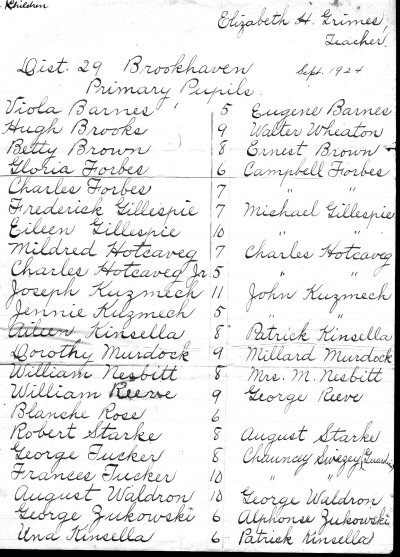 Children
Elizabeth H. Grimes,
Teacher.
Dist. 29 Brookhaven Sept. 1924
Primary Pupils.
Viola Barnes 5 Eugene Barnes
Hugh Brooks 9 Walter Wheaton
Betty Brown 8 Ernest Brown
Gloria Forbes 6 Campbell Forbes
Charles Forbes 7 " "
Frederick Gillespie 7 Michael Gillespie
Eileen Gillespie 10 " "
Mildred Hotcaveg 7 Charles Hotcaveg
Charles Hotcaveg Jr 5 " "
Joseph Kuzmech 11 John Kuzmech
Jennie Kuzmech 5 " "
Aileen Kinsella 8 Patrick Kinsella
Dorothy Murdock 9 Millard Murdock
William Nesbitt 8 Mrs. M. Nesbitt
William Reeve 9 George Reeve
Blanche Rose 6
Robert Starke 8 August Starke
George Tucker 8 Chauncey Swezey (Guardian)
Frances Tucker 10 " "
August Waldron 10 George Waldron
George Zukowski 6 Alphonse Zukowski
Una Kinsella 6 Patrick Kinsella